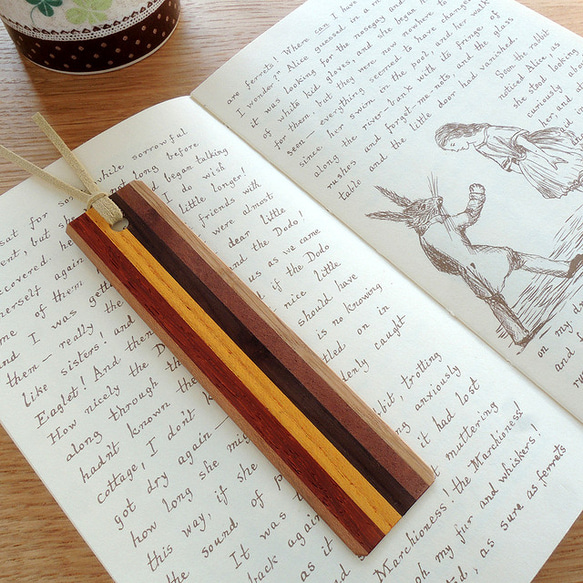 for so while sorrowful
but she not long before
and began talking
again I do wish
me of them little longer!
and I was friends with
them — really were almost
like sisters! and dear little
Eaglet! And and the Dodo!
How nicely the us as we came
along through if the Dodo
hadn't known nice little
cottage, I don't should have
got dry again — is no knowing
how long she on in
this way, if she caught
the sound of
It was trotting
back again anxiously
it had lost
muttering
Marchioness! the Marchioness!
oh my fur and whiskers!
as sure as ferrets
are ferrets! Where can I have
I wonder?" Alice guessed in a
it was looking for the nosegay and
of white kid gloves, and she began
for them, but they were now nowhere to
seen — everything seemed to have changed
since her swim in the pool, and her walk
along the river-bank with its fringe of
rushes and forget-me-nots, and the glass
table and the little door had vanished.
Soon the rabbit
noticed Alice as
she stood looking
curiously
her, and
on my
and